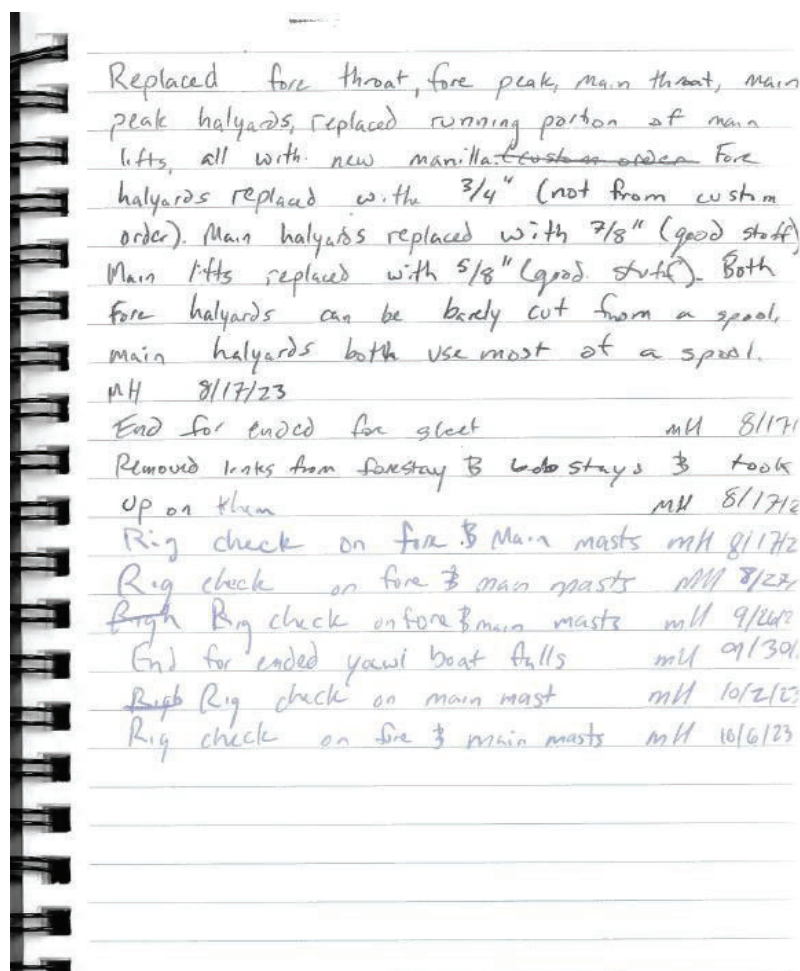 Replaced fore throat, fore peak, main throat, main
peak halyards, replaced running portion of main
lifts, all with new manilla. (custom order Fore
halyards replaced with 3/4" (not from custom
order). Main halyards replaced with 7/8" (good stuff)
Main lifts replaced with 5/8" (good stuff). Both
fore halyards can be barely cut from a spool,
main halyards both use most of a spool.
MH 8/17/23
End for ended for sheet MH 8/17/
Removed links from forestay & bobstays & took
up on them MH 8/17/2
Rig check on fore & Main masts MH 8/17/2
Rig check on fore & main masts MH 8/27/
Righ Rig check on fore & main masts MH 9/26/2
End for ended yawl boat falls MH 09/30/
Righ Rig check on main mast MH 10/2/23
Rig check on fore & main masts MH 10/6/23